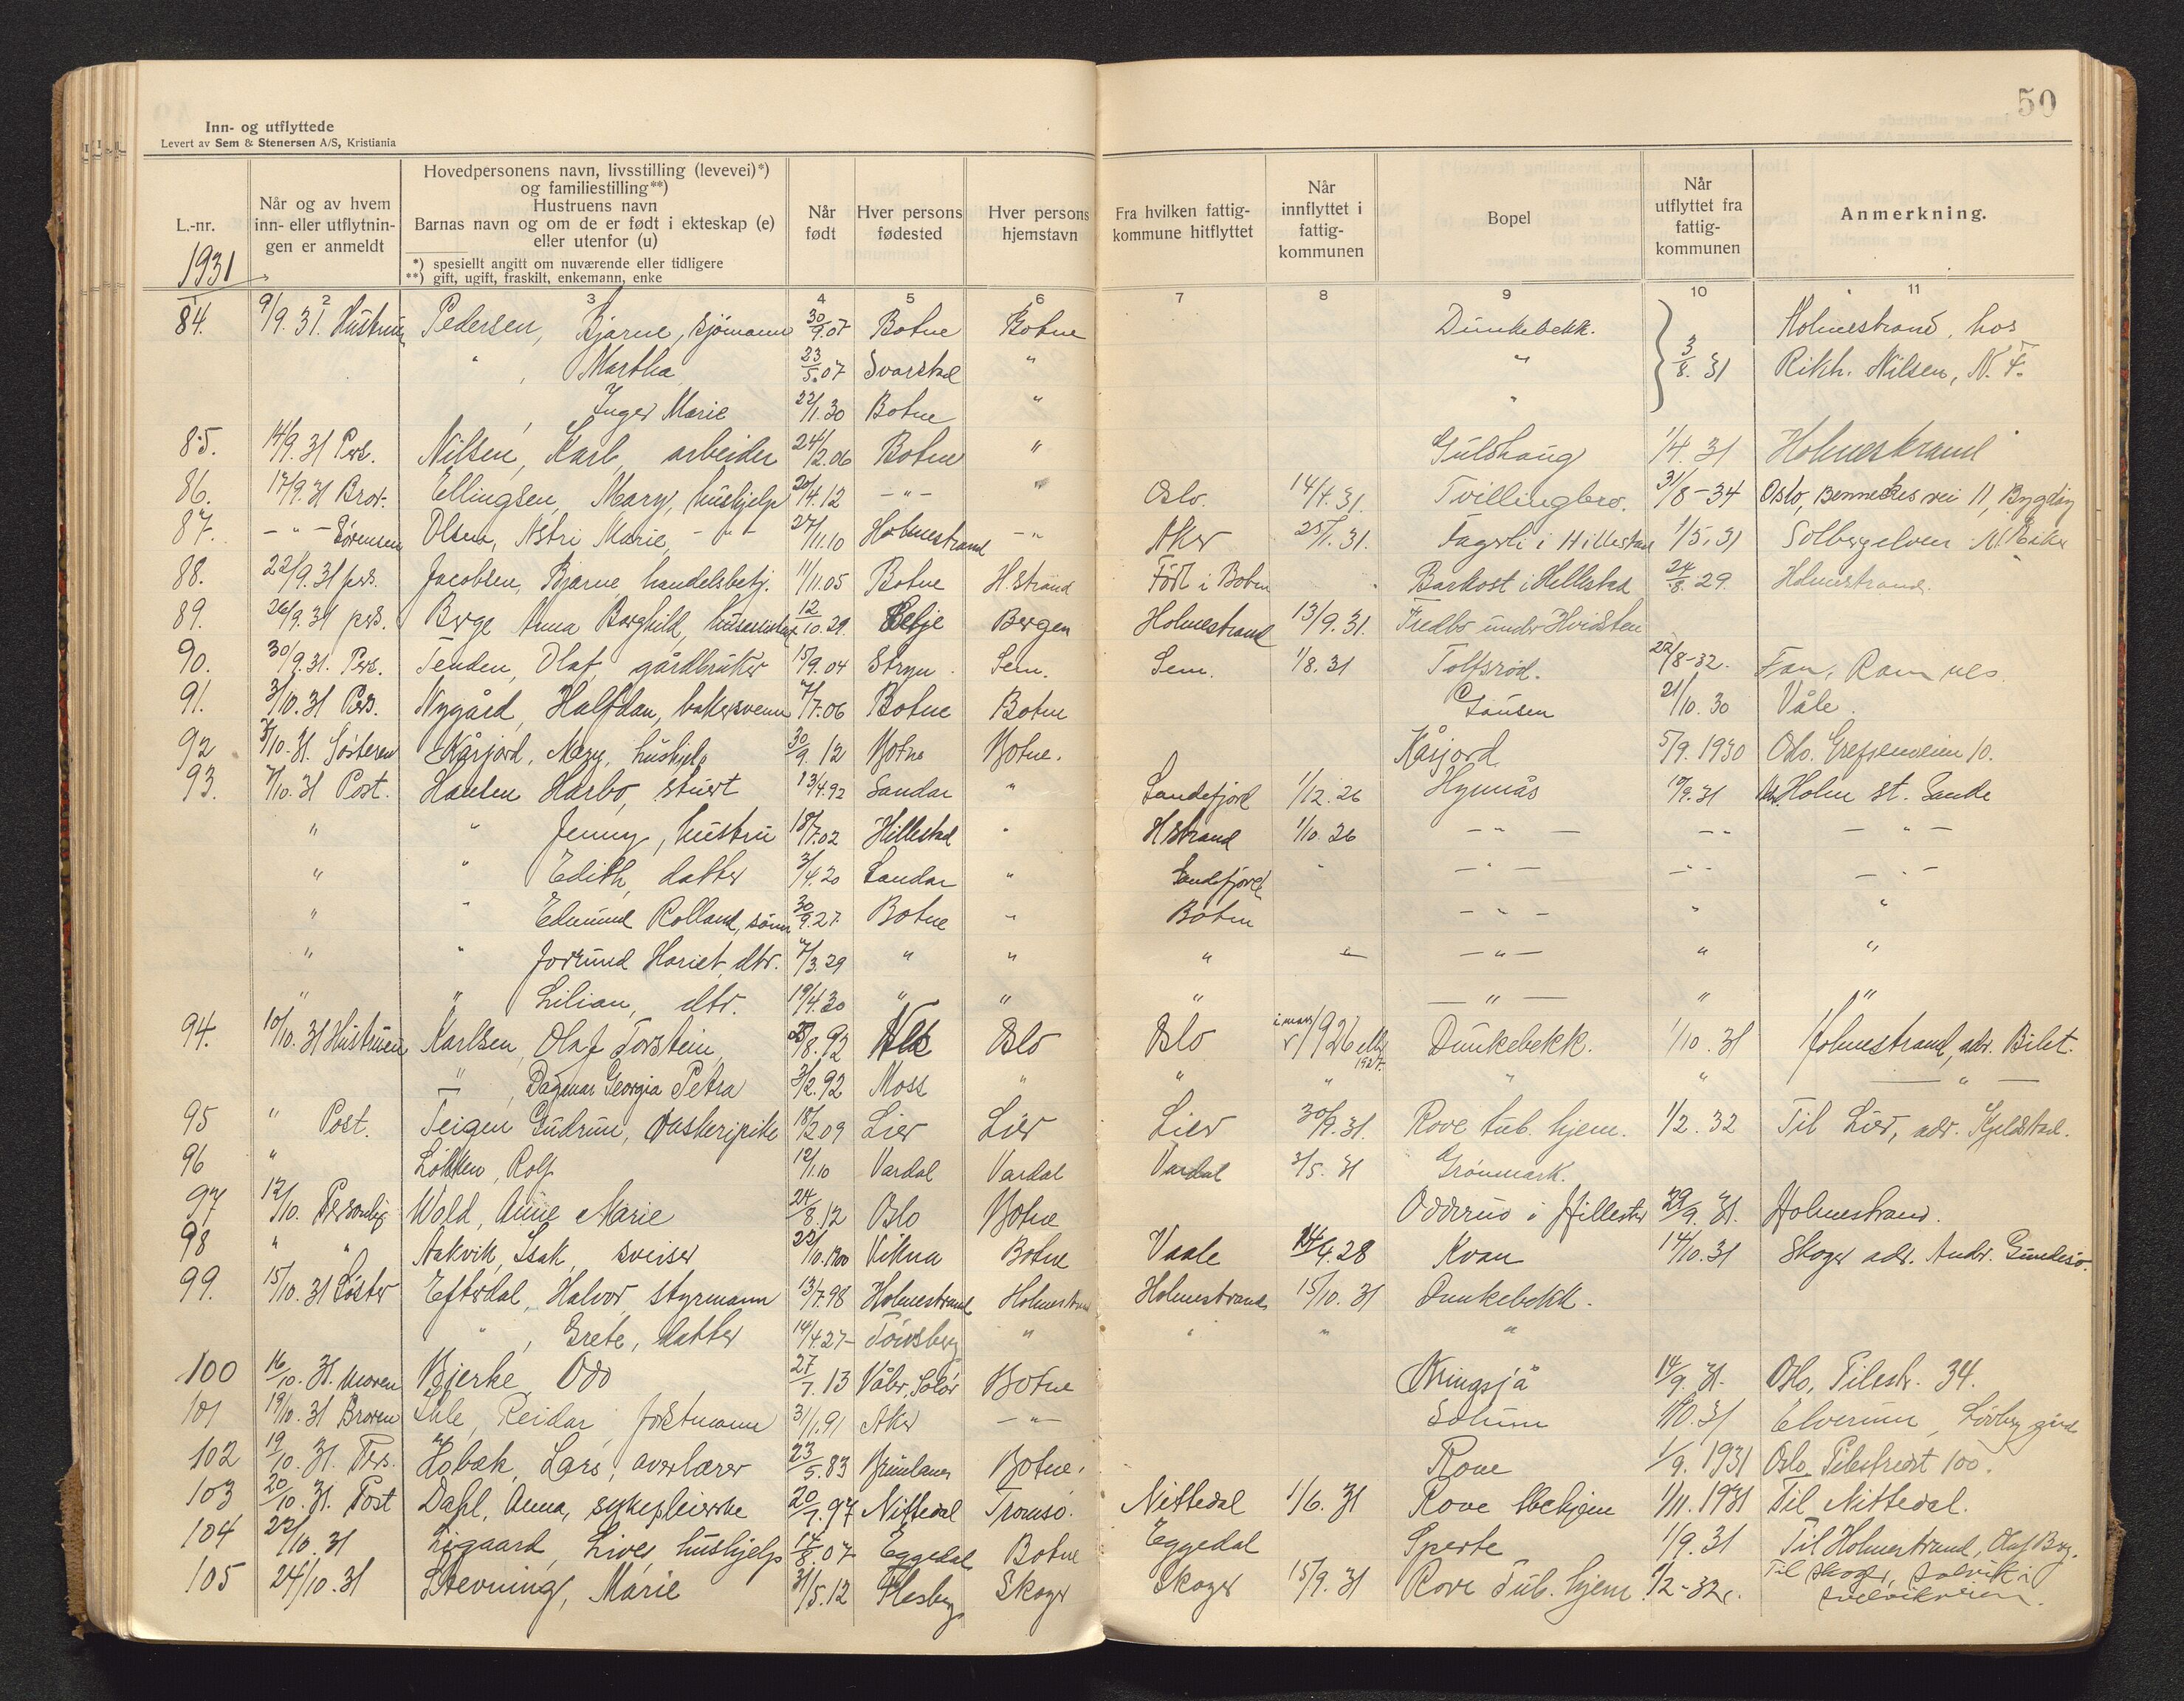 50
Inn- og utflyttede
Levert av Sem & Stenersen A/S, Kristiania
L.-nr.
Når og av hvem inn- eller utflytnin-gen er anmeldt
Hovedpersonens navn, livsstilling (levevei)*)
og familiestilling**)
Hustruens navn
Barnas navn og om de er født i ekteskap (e)
eller utenfor (u)
*) spesiellt angitt om nuværende eller tidligere
**) gift, ugift, fraskilt, enkemann, enke
Når født
Hver persons fødested
Hver persons hjemstavn
Fra hvilken fattig-kommune hitflyttet
Når innflyttet i fattig-kommunen
Bopel
Når utflyttet fra fattig-kommunen
Anmerkning.
1931
2 3 4 5 6 7 8 9 10 11
84. 9/9.31. Hustruen Pedersen, Bjarne, sjømann 30/9.07 Botne Botne Dunkebekk. Holmestrand, hos
" , Martha 23/5.07 Svarstad " " 3/8.31 Rikh. Nilsen, N. F.
, Inger Marie 22/1.30 Botne " "
85. 14/9.31 Pers. Nilsen, Karl, arbeider 24/12.06 Botne " Gulshaug 1/4.31 Holmestrand
86. 17/9.31 Bror. Ellingsen, Mary, hushjelp 20/4.12 -"- " Oslo. 14/4.31. Tvillingbro. 31/8-34 Oslo, Bennectes vei 11, Bygdøy
87. -"- Sørensen Olsen, Astri Marie, -"- 27/11.10 Holmestrand -"- Aker 25/1.31. Fagerli i Hillestad 1/5.31 Solbergelven N. Eiker
88. 22/9.31 pers. Jacobsen, Bjarne handelsbetj. 11/11.05 Botne H.strand Født i Botne Barkost i Hillestad 24/8.29. Holmestrand.
89. 26/9.31 pers. Berge Anna Borghild, 12/10.29. Selje Bergen Holmestrand 13/9.31. Fredbo under Hvidsten
90. 30/9.31. Pers. Tenden, Olaf, gårdbruker 15/9.04 Stryn. Sem. Sem. 1/8.31 Tolfsrød. 22/8-32. Fam. Ramnes.
91. 3/10.31 Pers. Nygård, Halfdan, bakersvenn 7/7.06 Botne Botne Lausen 21/10.30 Våle.
92 3/10.31. Søsteren Kårjord, Mary, hushjelp 30/9.12 Botne Botne. Kårjord 5/9.1930 Oslo. Grefsenveien 10.
93. 7/10.31 Post. Hansen Harbo, stuert 13/4.92 Sandar " Sandefjord 1/12.26 Hynnås 19/9.31 Holm st. Sande
" " Jenny, hustru 18/7.02 Hillestad " H.strand 1/10.26 -"- -"- -"-
" " Edith, datter 3/4.20 Sandar " Sandefjord " -"- -"- -"-
" " Edmund Rolland, sønn 30/9.27. Botne " Botne -"- " "
" " Jorund Hariet, dtr. 7/3.29 " " " " -"- " "
" " Lilian, dtr. 19/4.30 " " " -"- " "
94. 10/10.31 Hustruen Karlsen, Olaf Torstein, 28/8.92 Oslo Oslo 1926 eller 1927. Dunkebekk. 1/10.31 Holmestrand, adr. Bibt.
" , Dagmar Georgia Petra 3/2.92 Moss " " " " " -"-
95 " Post. Teigen Gudrun, vaskeripike 18/2.09 Lier Lier Lier 30/9.31. Rove tub. hjem. 1/2.32 Til Lier, adr. Kjeldstad.
96 " Løkken, Rolf 12/1.10 Vardal Vardal Vardal 3/5.31 Grønmark.
97 12/10. Personlig Wold, Anne Marie 24/8.12 Oslo Botne Odderud i Hillestad 29/9.31. Holmestrand.
98 " " Aakvik, Isak, sveiser 22/10.1900 Vikna Botne Vaale 14/4.28 Kvan 14/10.31 Skoger adr. Andr. Gundesø.
99. 15/10.31 Søster Efterdal, Halvor, styrmann 13/7.98 Holmestrand Holmestrand Holmestrand 15/10.31 Dunkebekk.
" , Grete, datter 14/4.27- Tønsberg " " " "
100 16/10.31. moren Bjerke Odd 27/7.13 Våler, Solør Botne Kringsjå 14/9.31. Oslo, Pilestr. 34.
101 19/10.31 Broren Ihle, Reidar, forstmann 31/1.91 Aker -"- Solum 1/10.31 Elverum, Løvberg gård
102 19/10.31. Pers. Hobæk, Lars, overlærer 23/5.83 Brunlanes Botne. Rove 1/9.1931 Oslo Pilestredet 100.
103 20/10.31. Post Dahl, Anna, sykepleierske 20/7.97 Nittedal Tromsø. Nittedal 1/6.31 Rove tbchjem 1/11.1931 Til Nittedal.
104 22/10.31 Ligaard, Lives, hushjelp 14/8.07 Eggedal Botne Eggedal Sperte 1/9.31 Til Holmestrand, Olaf Bry.
105 24/10.31 Stevning, Marie 31/5.12 Flesberg Skoger Skoger 15/9.31 Rove Tub. hjem. 1/2-32. Til Skoger, Solvik i
Svelvikveien.